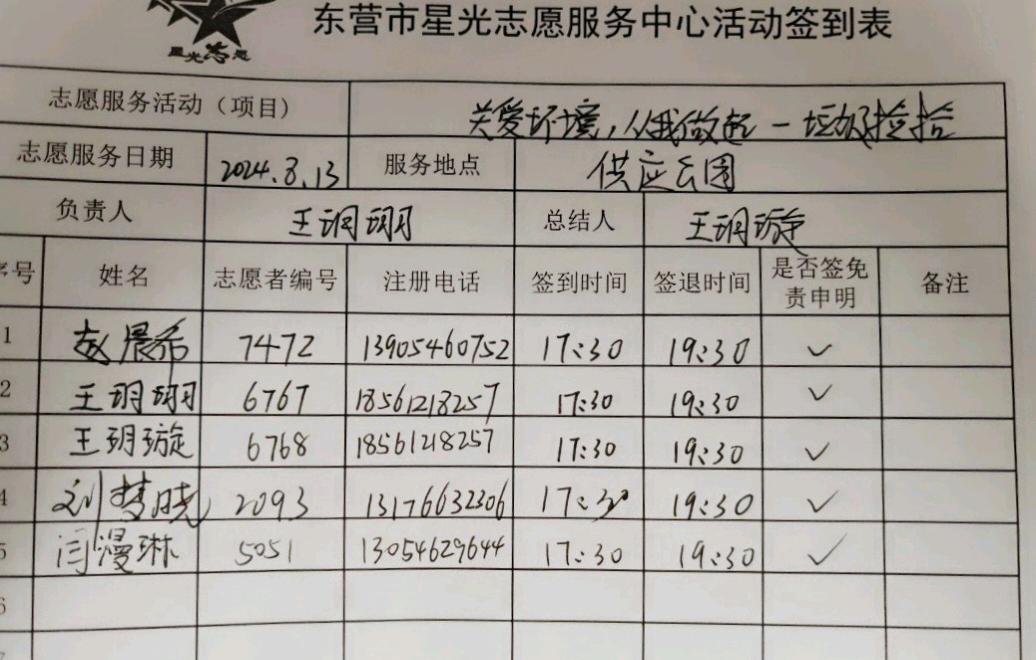 星光志愿
东营市星光志愿服务中心活动签到表
志愿服务活动（项目） 关爱环境，从我做起－垃圾捡拾
志愿服务日期 2024.8.13 服务地点 供应公园
负责人 王玥珝 总结人 王玥璇
序号 姓名 志愿者编号 注册电话 签到时间 签退时间 是否签免责申明 备注
1 赵晨希 7472 13905460752 17:30 19:30 ✓
2 王玥珝 6767 18561218257 17:30 19:30 ✓
3 王玥璇 6768 18561218257 17:30 19:30 ✓
4 刘梦晓 2093 13176632306 17:30 19:30 ✓
5 闫漫琳 5051 13054629644 17:30 19:30 ✓
6